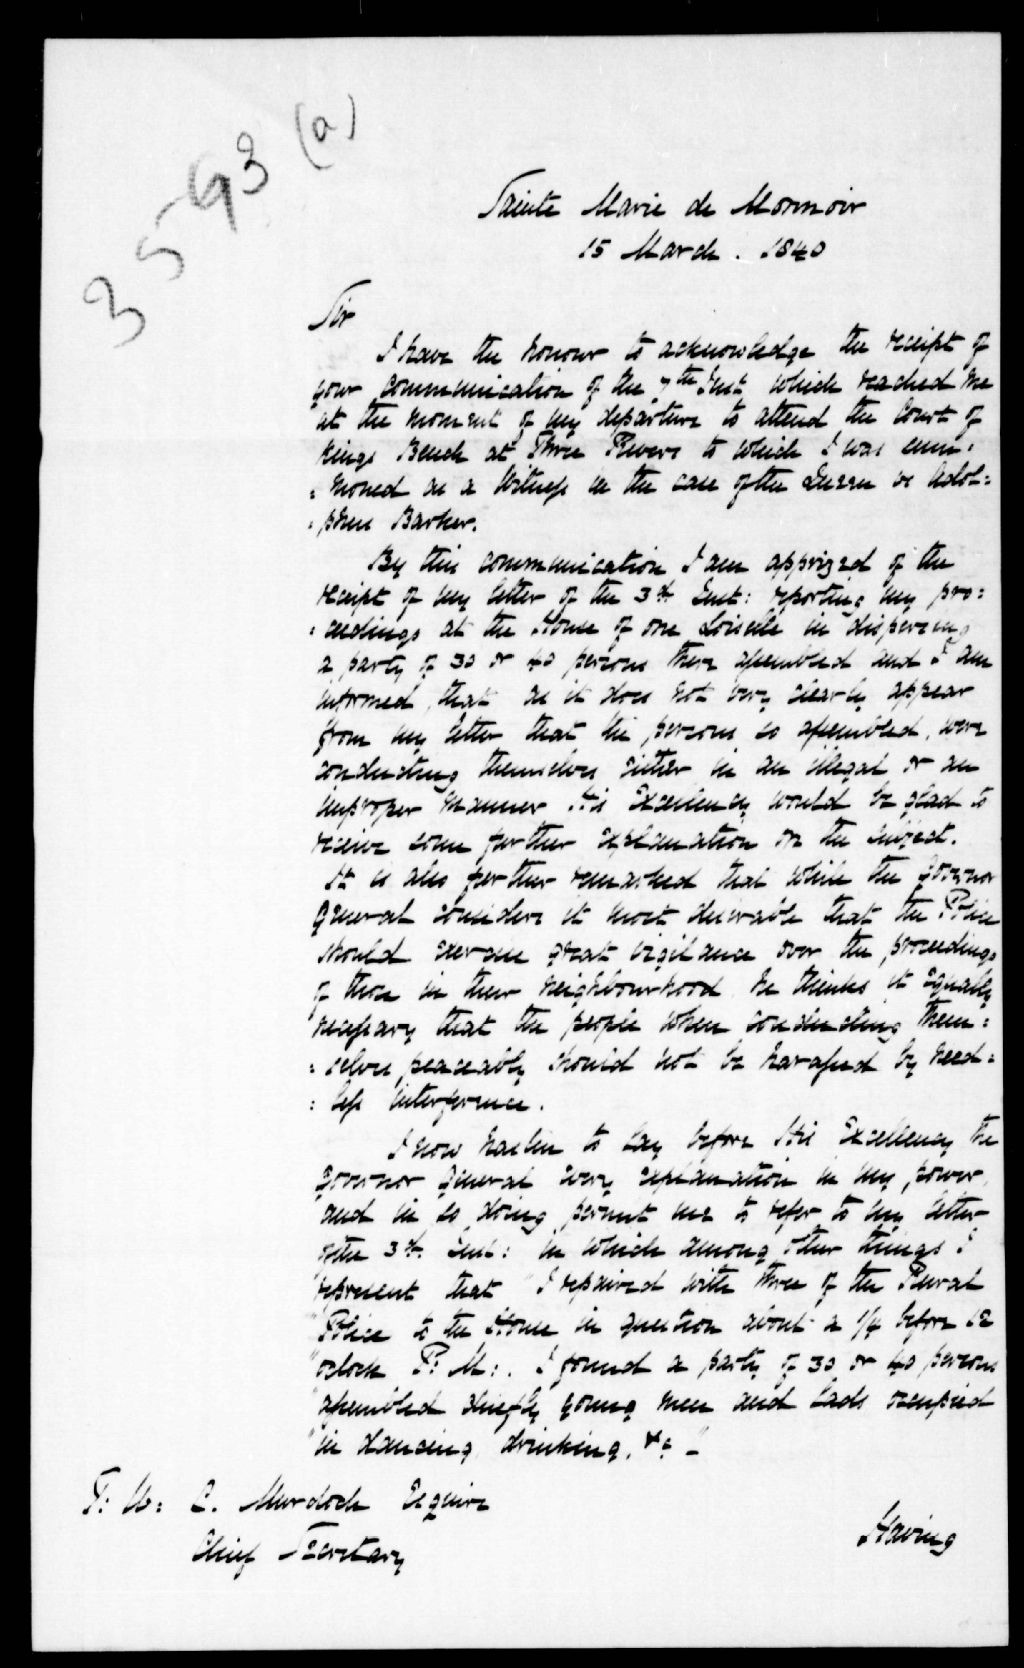 3593 (a)
Sainte Marie de Monnoir
15 March . 1840
Sir
I have the honour to acknowledge the receipt of
your communication of the 7th Inst which reached me
at the moment of my departure to attend the Court of
Kings Bench at Three Rivers to which I was sum:
:moned as a Witness in the case of the Queen vs Adol:
:phus Barker.
By this communication I am apprized of the
receipt of my letter of the 3d. Inst: reporting my pro:
:ceedings at the House of one Loiselle in dispersing
a party of 30 or 40 persons there assembled and I am
informed, that as it does not very clearly appear
from my letter that the persons so assembled, were
conducting themselves either in an illegal or an
improper manner His Excellency would be glad to
receive some further explanation on the subject.
It is also further remarked that while the Governor
General considers it most desirable that the Police
should exercise great vigilance over the proceedings
of those in their neighbourhood he thinks it equally
necessary that the people when conducting them:
:selves peaceably should not be harassed by need:
:less interference.
I now hasten to lay before His Excellency the
Governor General every explanation in my power,
and in so doing permit me to refer to my letter
of the 3d. Inst: in which among other things I
represent that "I repaired with three of the Rural
"Police to the House in question about a 1/4 before 12
"oclock P: M:. I found a party of 30 or 40 persons
"assembled chiefly young men and lads occupied
"in dancing, drinking, &c "_
T: W: C. Murdoch Esquire
Chief Secretary
Having